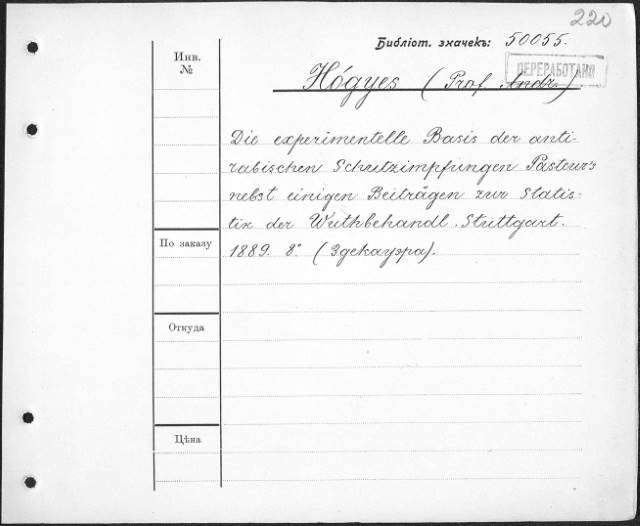 220
Библіот. значекъ: 50055.
ПЕРЕРАБОТАНО
Инв.
№
Högyes (Prof. Andr.)
Die experimentelle Basis der anti-
rabischen Schutzimpfungen Pasteur's
nebst einigen Beiträgen zur Statis-
tik der Wuthbehandl. Stuttgart.
1889. 8°. (Здекауэра).
По заказу
Откуда
Цѣна